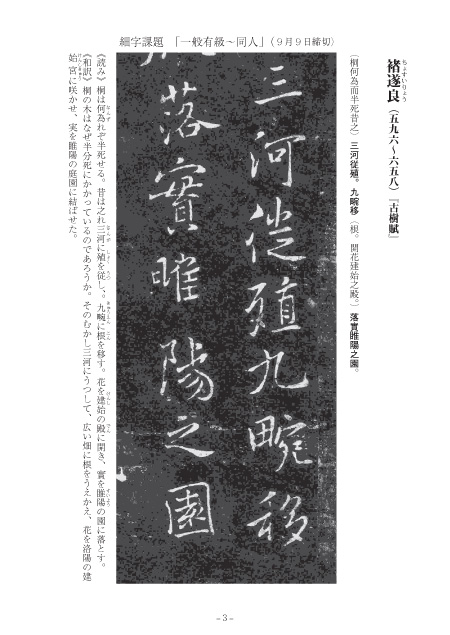 細字課題 「一般有級～同人」(９月９日締切)
褚遂良(五九六～六五八)『古樹賦』
ちょすいりょう
(桐何為而半死昔之)三河従殖。九畹移(根。開花建始之殿。)落實睢陽之園。
三河徙殖九畹移
落實睢陽之園
《読み》桐は何為れぞ半死せる。昔は之れ三河に殖を従し、九畹に根を移す。花を建始の殿に開き、實を睢陽の園に落とす。
《和訳》桐の木はなぜ半分死にかかっているのであろうか。そのむかし三河にうつして、広い畑に根をうえかえ、花を洛陽の建
始宮に咲かせ、実を睢陽の庭園に結ばせた。
－3－